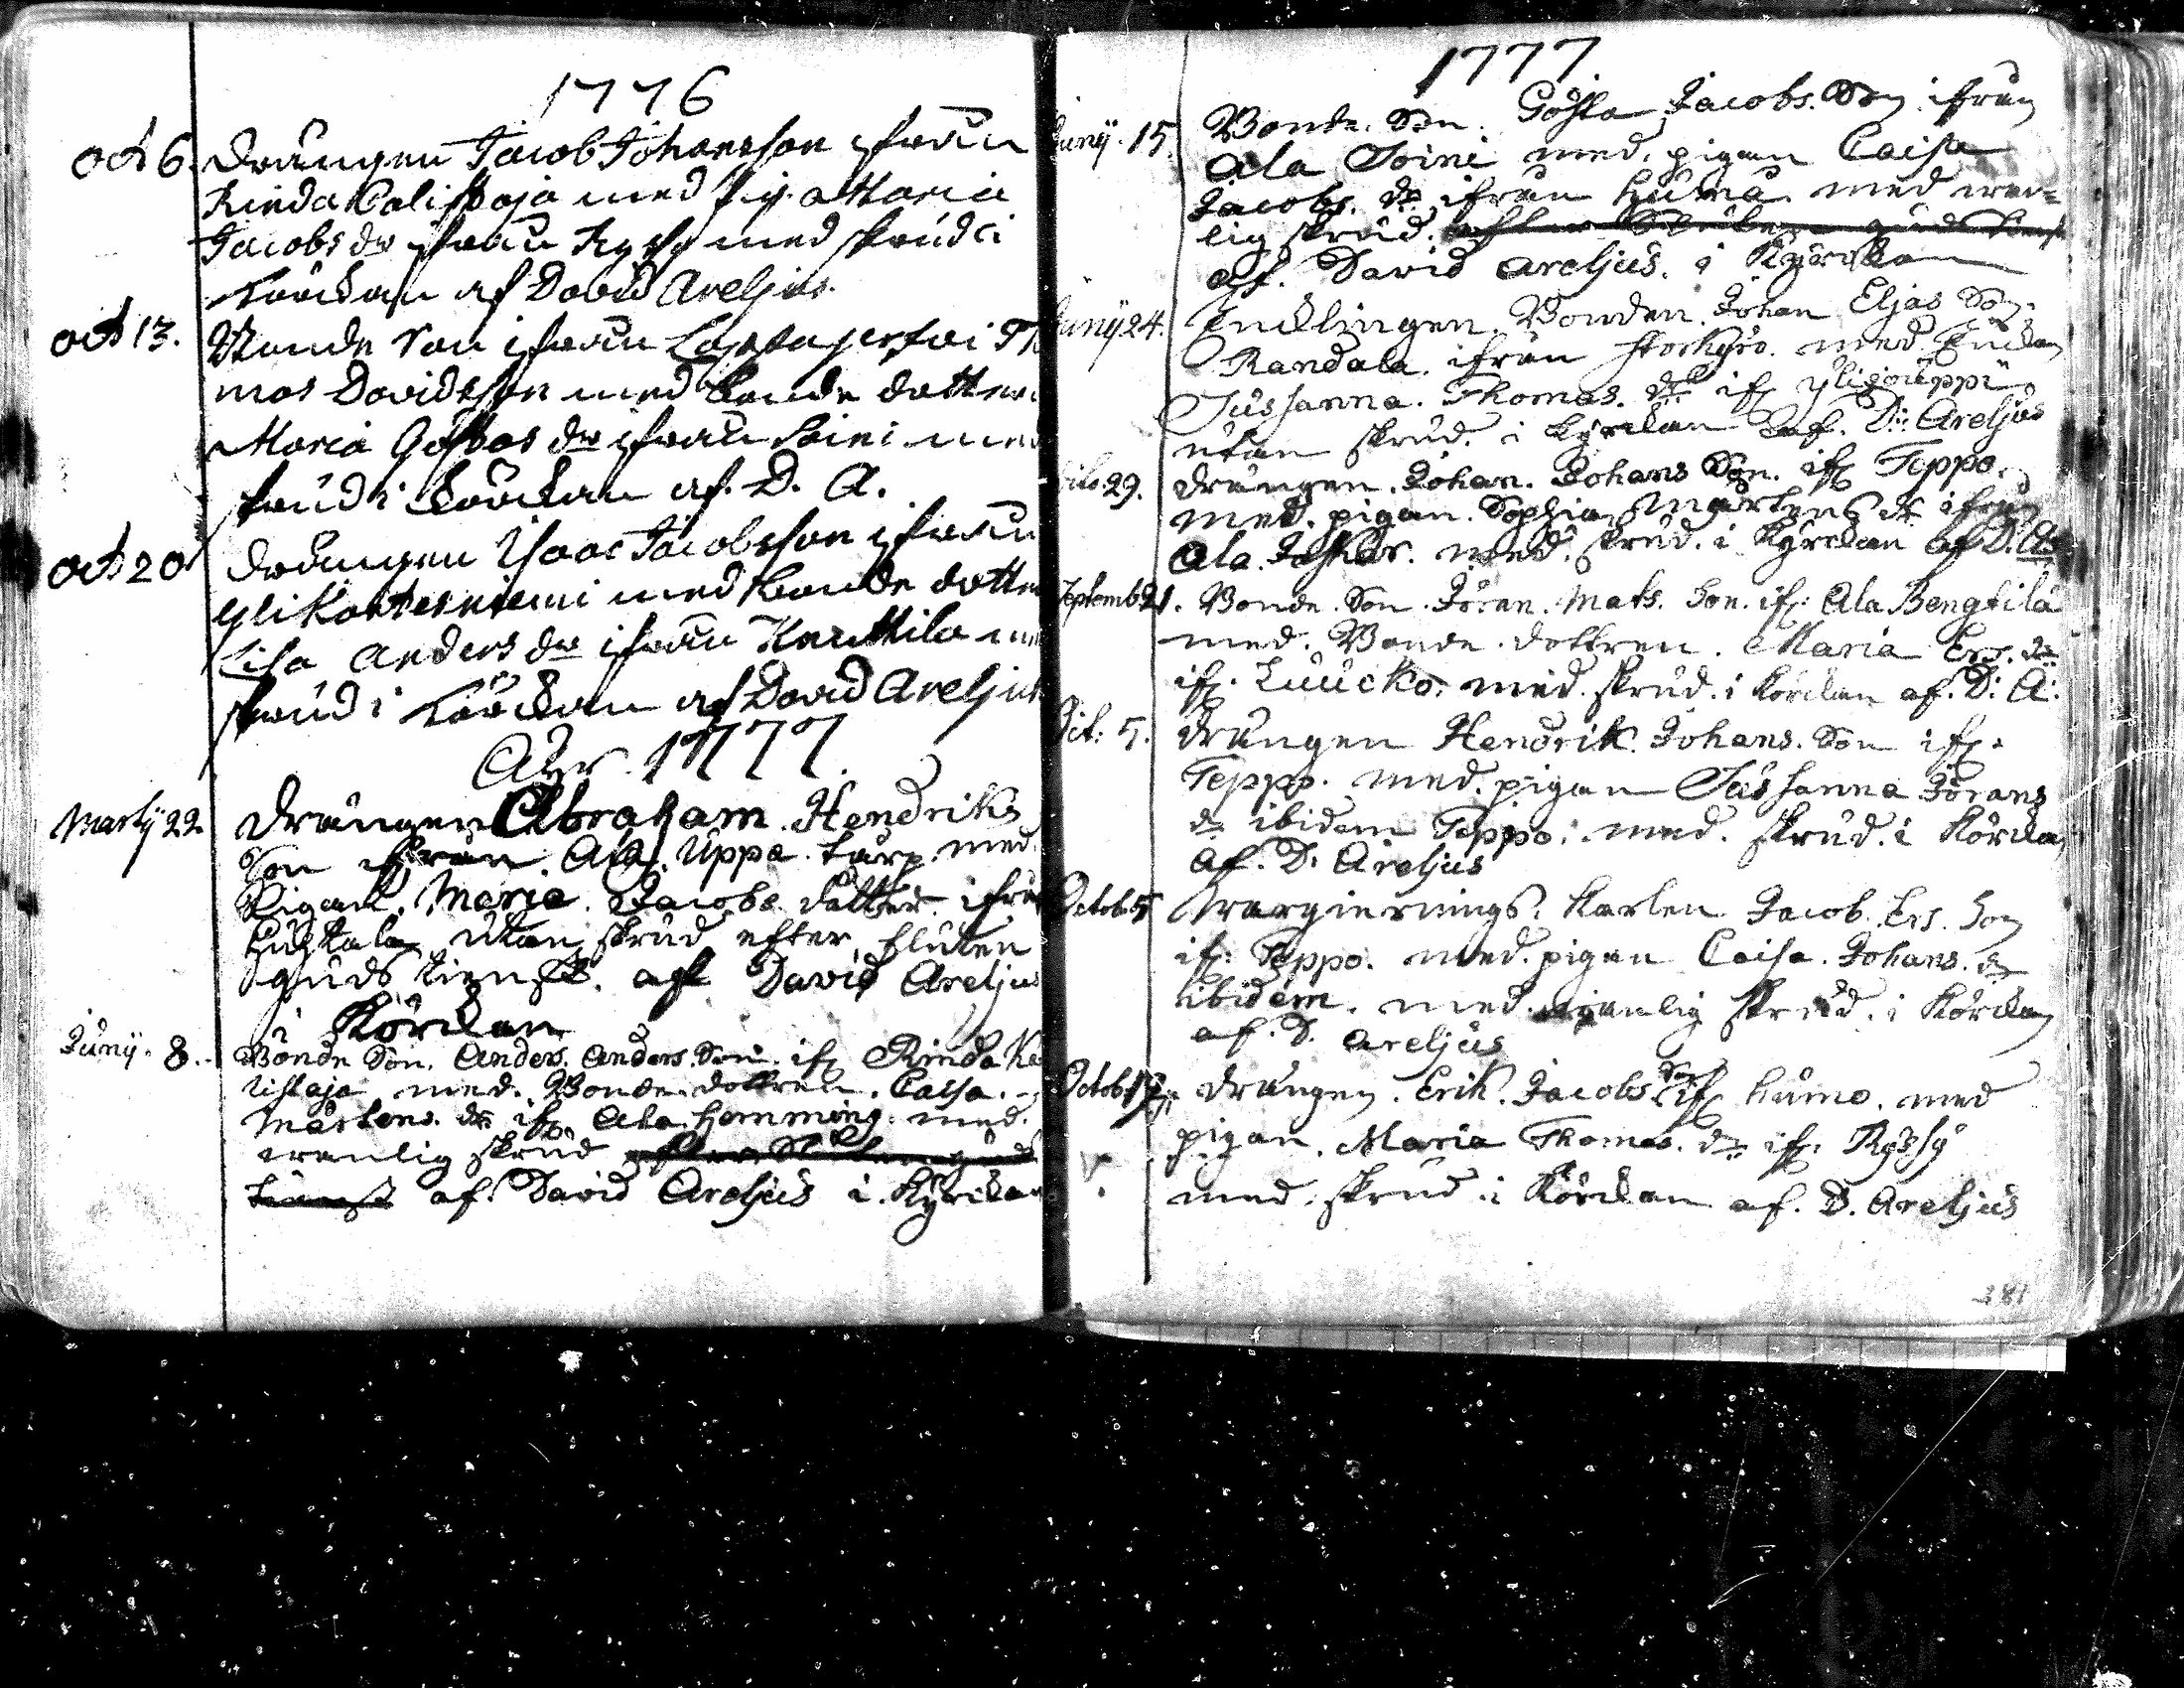 1776
Oct 6. Drängen Jacob Johansson ifrån
Rinda Calistaja med Pig. Maria
Jacobs dr ifrån Ryssy med skrud i
Körckan af David Areljus.
Oct 13. Bonde Son ifrån Lappajerfwi Th
mas Davidsson med Bonde dottren
Maria Göstas dr ifrån Soini med
skrud i Körckan af D. A.
Oct 20 Drängen Isaac Jacobsson ifrån
Yli Kortesniemi med Bonde dotte
Lisa Anders dr ifrån Knuttila
skrud i Körckan af David Areljus
Ahr. 1777.
Martij 22 Drängen Abraham Hendriks
Son ifrån Ala. Uppa. tårp. med
Pigan. Maria. Jacobs. dotter. ifrån
utan skrud efter sluten
guds tienst. af David Areljus
i Körckan
Junij. 8. Bonde Son. Anders. Anders. Son. if: Rinda Ka
listaja med. Bonde dottren. Caisa.
Mårtens. dr if: Ala. Hemming. med.
wanlig skrud
af. David Areljus i. Kyrckan
1777
Junij. 15. Bonde. Son. Gösta Jacobs. Son ifrån
Ala Soini med. pigan Caisa
Jacobs. dr ifrån Huma med wan=
lig skrud.
af. David Areljus. i Kyrckan
Junij 24. Enklingen. Bonden. Johan Eljas Son
Randala. ifrån Storkyro. med. Enckan
Sussanna. Thomas. dr if: Ylijouppi
utan skrud. i Kyrckan af. D: Areljus
29. Drängen. Johan. Johans Son. if: Teppo.
med. pigan. Sophia Mårtens dr ifrån
Ala. med. skrud. i Kyrckan af D. A.
Septemb 21. Bonde. Son. Jöran. Mats. Son. if: Ala Bengtila
med. Bonde. dottren. Maria Ers. dr
if: Luucko. med. skrud. i Körckan af. D: A:
Oct: 5. Drängen Hendrik. Johans. Son if:
Teppo. med. pigan Sussanna Jörans
dr ibidem Teppo. med. skrud. i Körckan
af. D. Areljus
Octob 5 Karlen Jacob. Ers. Son
if: Teppo. med. pigan Caisa. Johans. dr
ibidem. med. wanlig skrud. i Körckan
af. D. Areljus
Octob Drängen. Erik. Jacobs Son if: Humo. med
pigan. Maria Thomas. dr if: Ryssy
med. skrud i Körckan af. D. Areljus
381